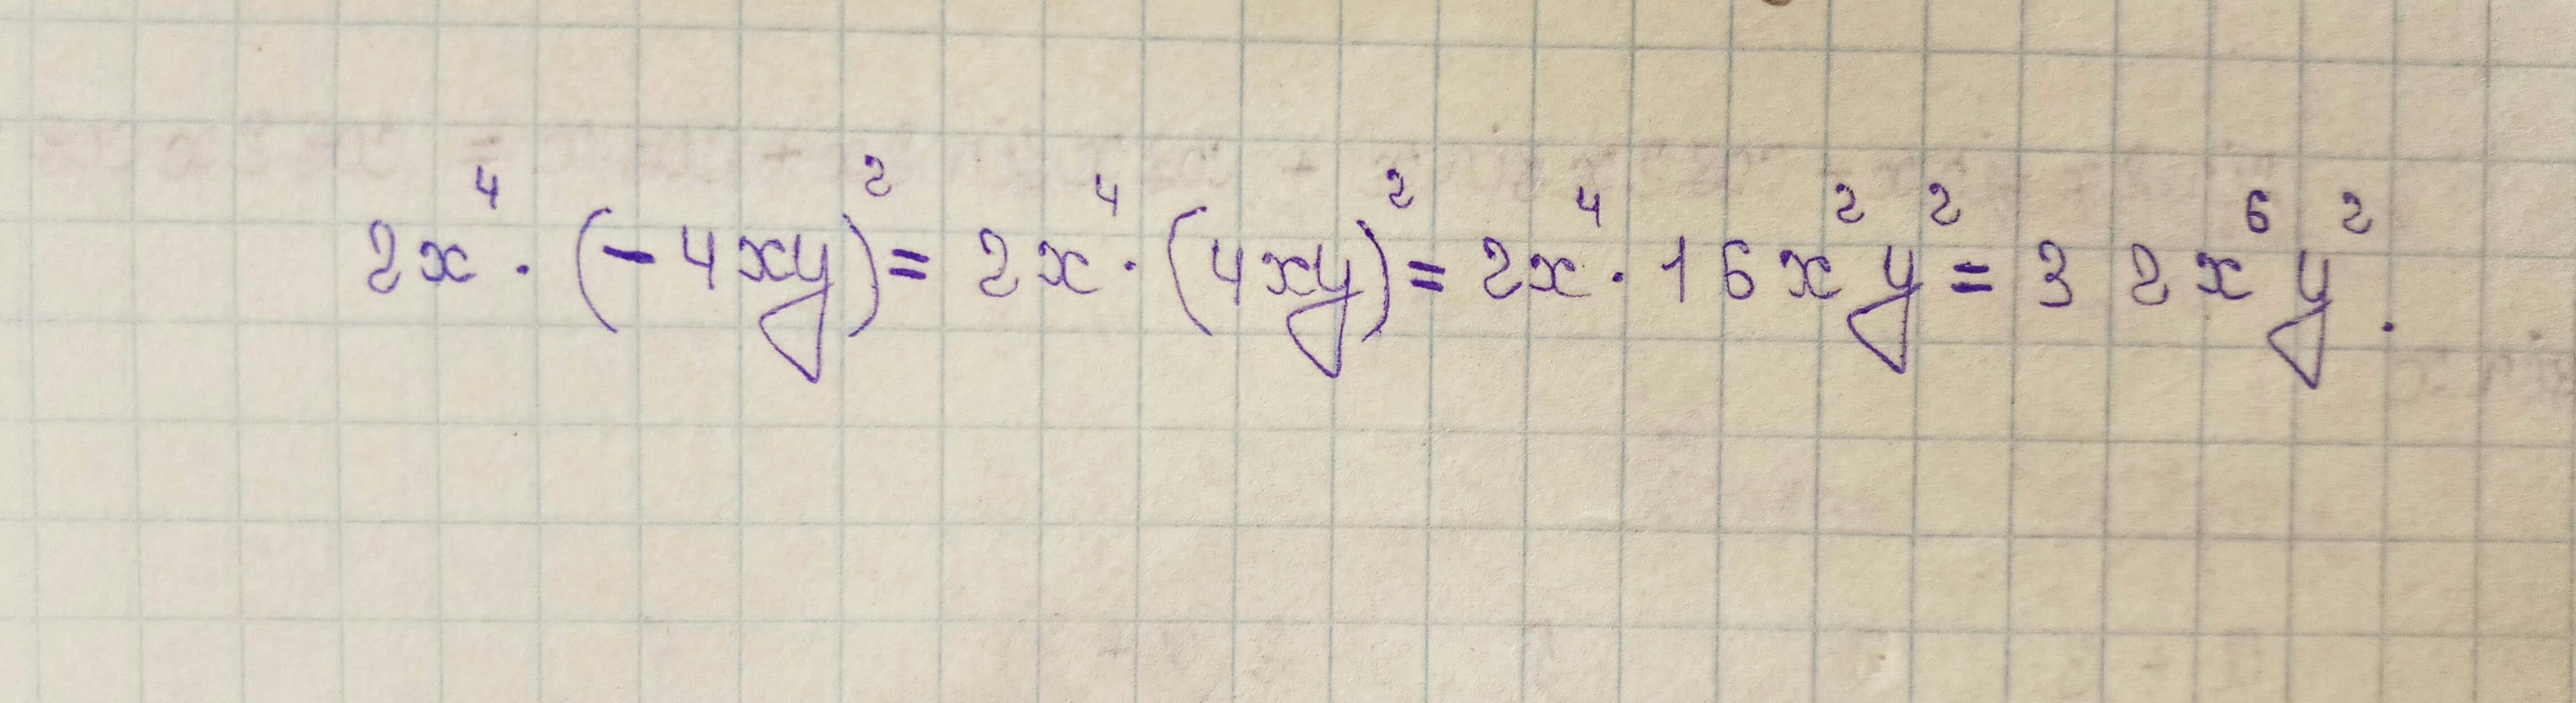 2x⁴ · (-4xy)² = 2x⁴ · (4xy)² = 2x⁴ · 16x²y² = 32x⁶y².